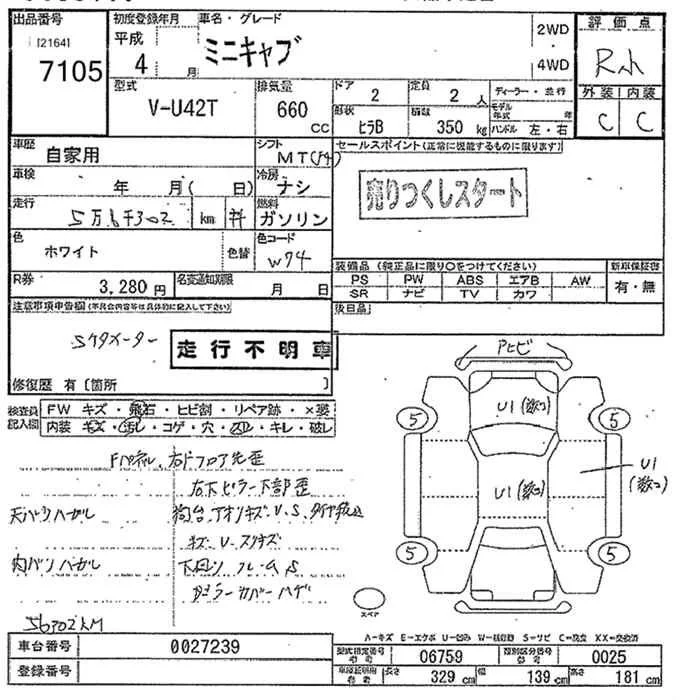 出品番号 初度登録年月 車名・グレード 2WD 評価点
[2164] 平成 ミニキャブ
7105 4 月 4WD R小
型式 排気量 ドア 2 定員 2 人 ディーラー・並行 外装 内装
V-U42T 660 CC 形状 ヒラB 積載 350 kg モデル年式 年 C C
ハンドル 左・右
車歴 自家用 シフト MT(F4) セールスポイント(正常に機能するものに限ります)
車検 年 月( 日) 冷房 ナシ 売りつくしスタート
走行 5万6千302 km 燃料 ガソリン
色 ホワイト 色替 色コード W74
装備品(純正品に限り○をつけてください) 新車保証書
R券 3,280円 名変通知期限 月 日 PS PW ABS エアB AW 有・無
SR ナビ TV カワ
注意事項申告欄(不具合内容等は具体的に記入して下さい) 後日品
5ケタメーター
走行不明車
アヒビ
修復歴 有〔箇所 〕
検査員記入欄 FW キズ・飛石・ヒビ割・リペア跡・×要
内装 キズ・汚レ・コゲ・穴・スレ・キレ・破レ
U1(数コ)
5 5
Fパネル、右ドフロア先歪
右下ピラー下部歪
U1(数コ)
U1(数コ)
天バリハガレ 荷台、アオリキズ・U、S、
キズ・U・
5 5
内バリハガレ 下回り フレームS
カバーハゲ
スペア
56302KM
A=キズ E=エクボ U=凹み W=補修跡 S=サビ C=腐食 XX=交換済
車台番号 0027239 型式指定番号 参考 06759 類別区分番号 参考 0025
登録番号 車庫証明用 参考 長さ 329 cm 幅 139 cm 高さ 181 cm